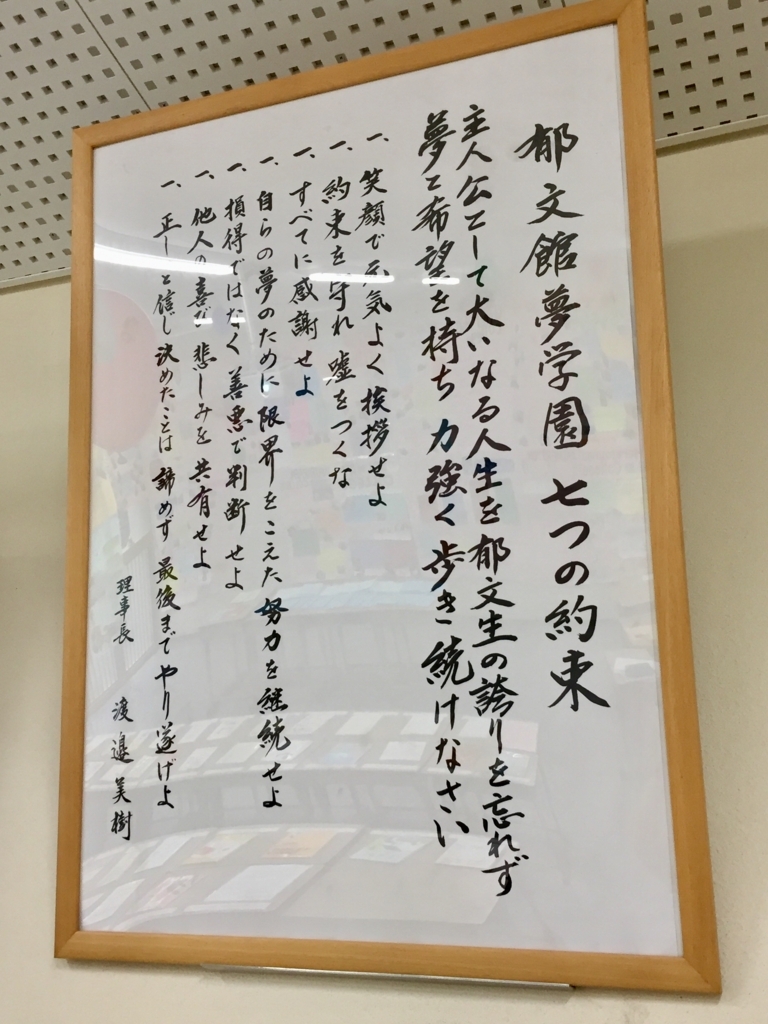 郁文館夢学園 七つの約束
主人公として大いなる人生を郁文生の誇りを忘れず
夢と希望を持ち 力強く歩き続けなさい
一、笑顔で元気よく挨拶せよ
一、約束を守れ 嘘をつくな
一、すべてに感謝せよ
一、自らの夢のために限界をこえた努力を継続せよ
一、損得ではなく善悪で判断せよ
一、他人の喜び 悲しみを共有せよ
一、正しいと信じ決めたことは諦めず 最後までやり遂げよ
理事長 渡邉美樹